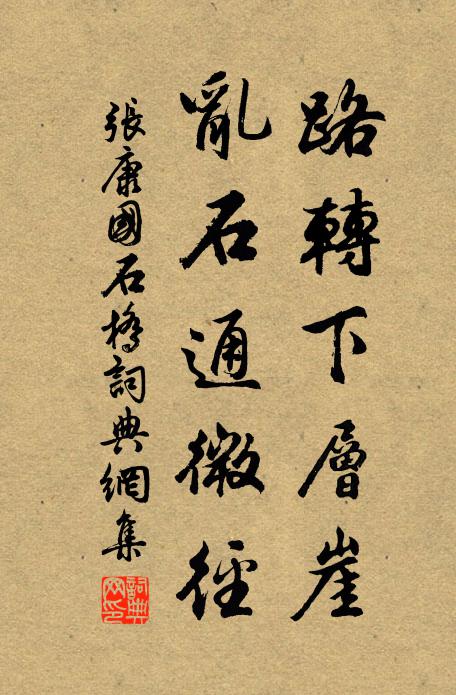 路轉下層崖
亂石通微徑
張康國石橋詞典網集
詞典網印